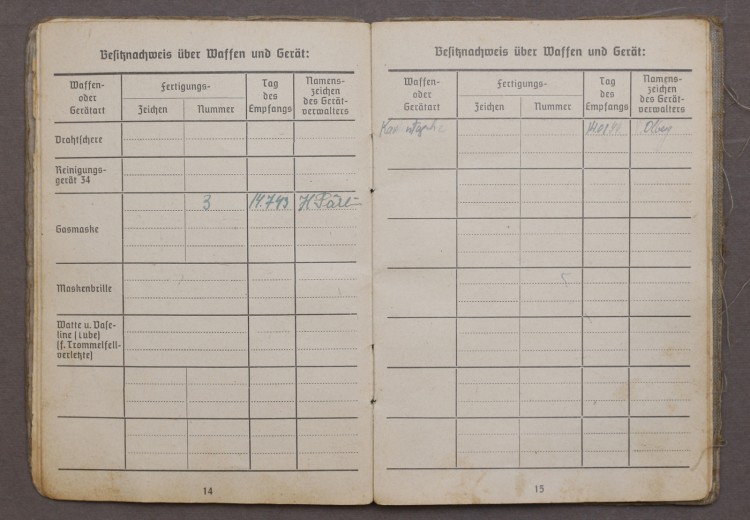 Besitznachweis über Waffen und Gerät:
Waffen-
oder
Gerätart
Fertigungs-
Zeichen
Nummer
Tag
des
Empfangs
Namens-
zeichen
des Gerät-
verwalters
Drahtschere
Reinigungs-
gerät 34
Gasmaske
3
14.7.43
Maskenbrille
Watte u. Vase-
line (Tube)
(f. Trommelfell-
verletzte)
14
Besitznachweis über Waffen und Gerät:
Waffen-
oder
Gerätart
Fertigungs-
Zeichen
Nummer
Tag
des
Empfangs
Namens-
zeichen
des Gerät-
verwalters
15